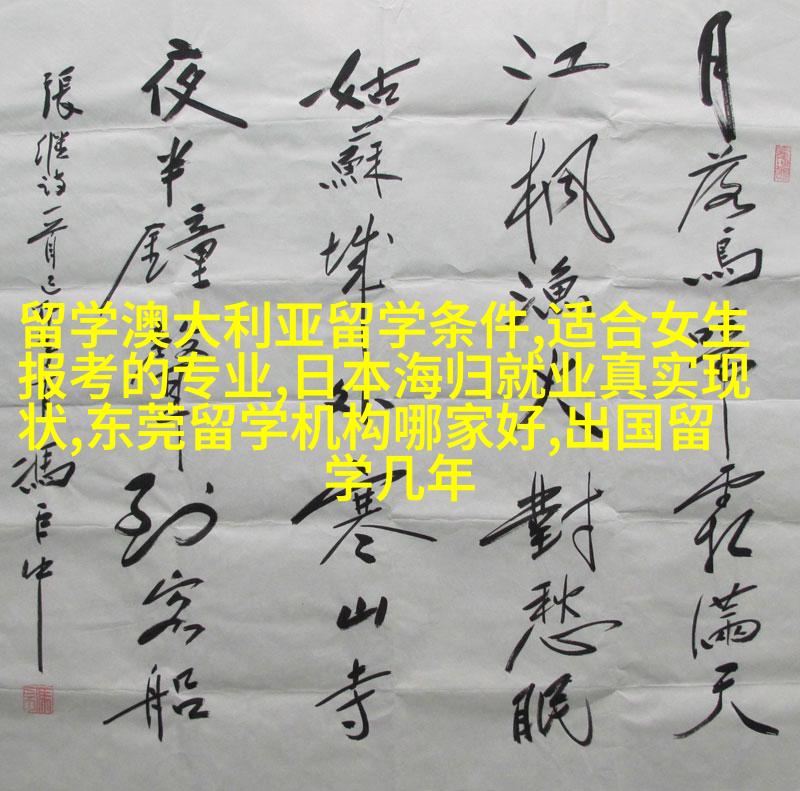 月落烏啼霜滿天
江枫漁火對愁眠
姑蘇城外寒山寺
夜半鐘聲到客船
張继诗一首
馮巨中
留学澳大利亚留学条件,适合女生
报考的专业,日本海归就业真实现
状,东莞留学机构哪家好,出国留
学几年